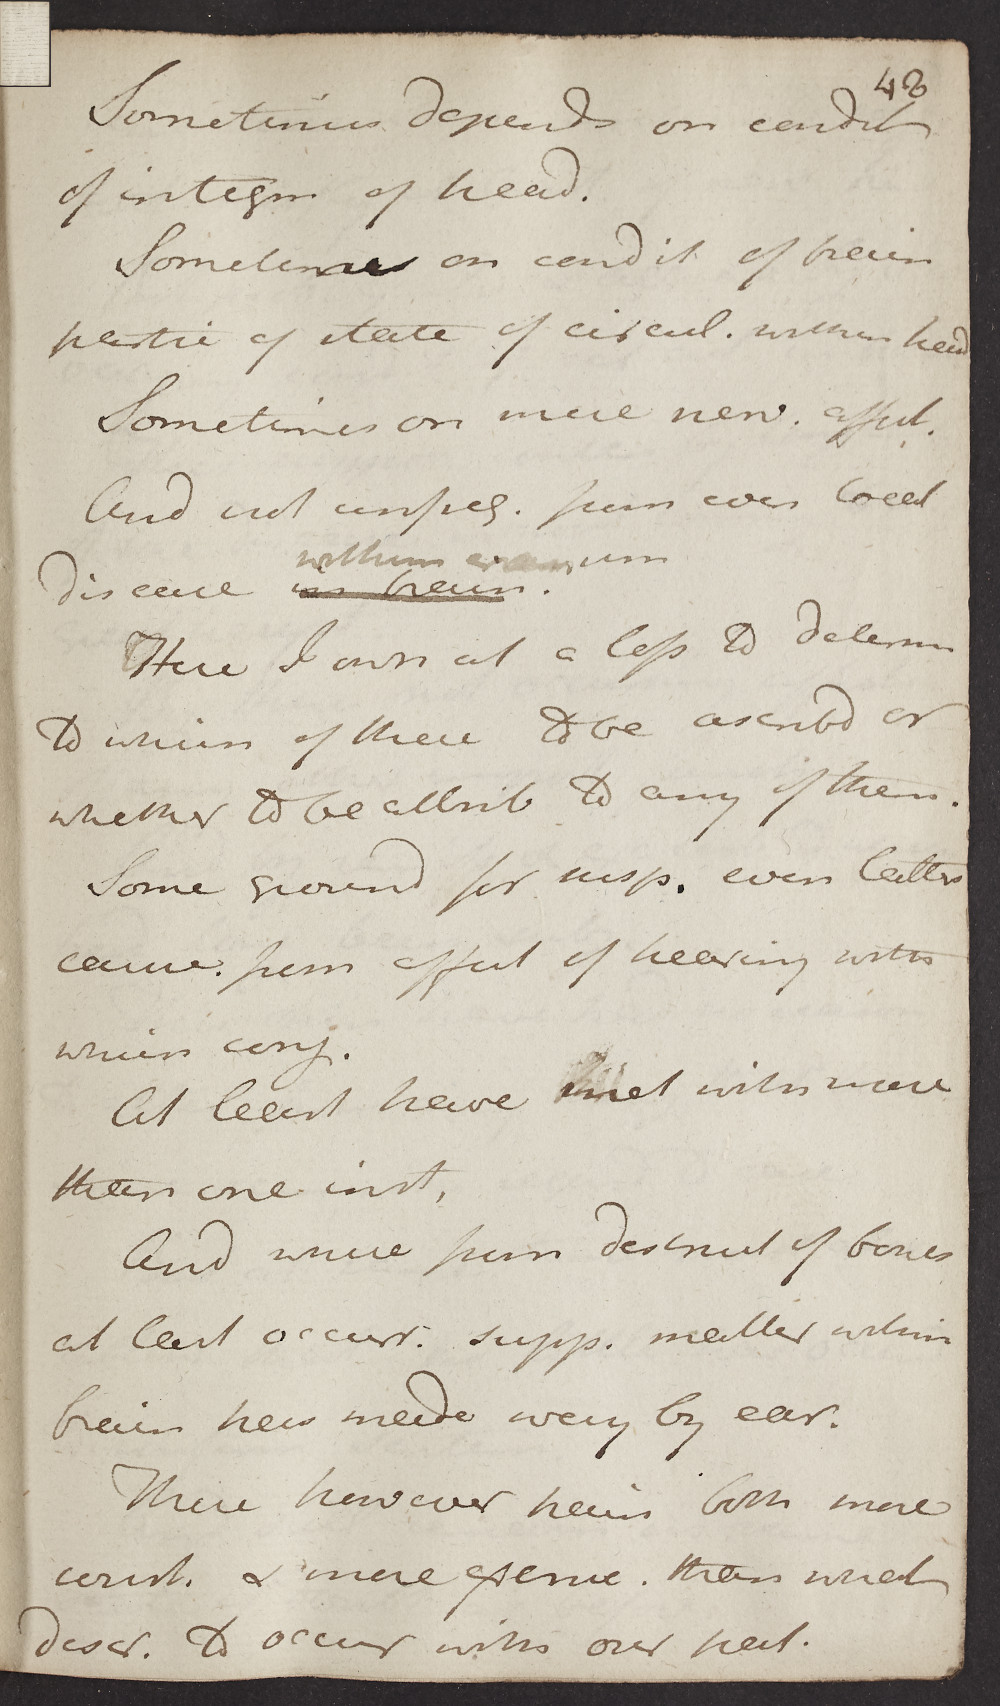 48
Sometimes depends on condit
of integm of head.
Sometimes on condit of brain
partic of state of circul. within head
Sometimes on mere nerv. affect.
And not unfreq. from even local
disease in brain.
within cranium
Here I own at a loss to determ
to which of these to be ascribd or
whether to be attrib to any of them.
Some ground for susp. even latter
cause. from affect of hearing with
which conj.
At least have met with more
than one inst,
And where from destruct of bones
at least occurr. supp. matter within
brain has made way by ear.
There however pain both more
const. & more extens. than what
descr. to occur with our pat.